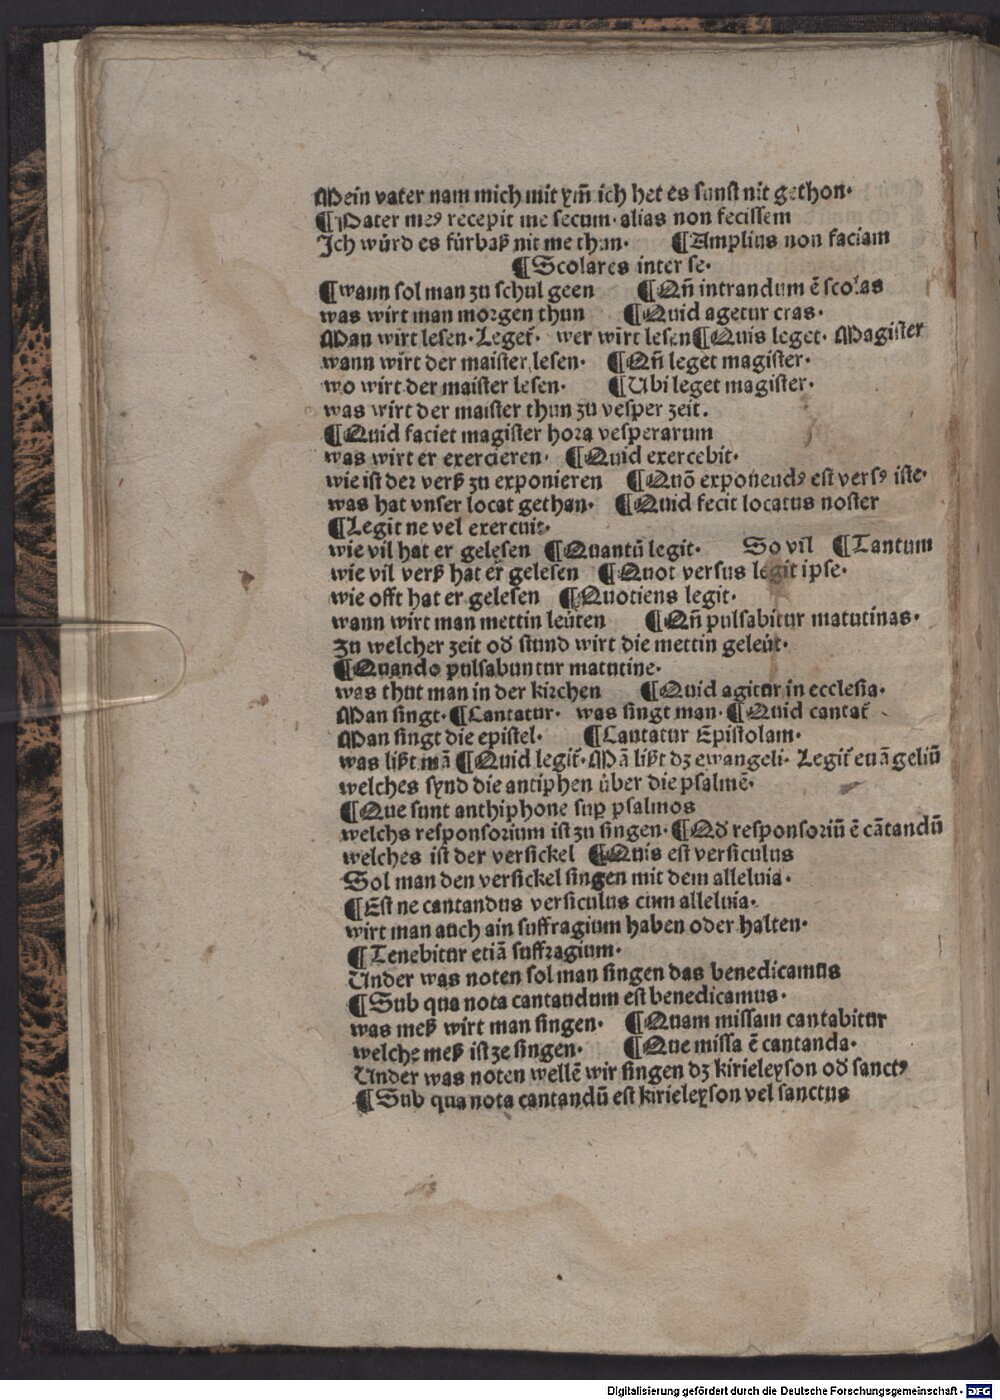 Mein vater nam mich mit ym̄ ich het es sunst nit gethon·
¶Pater meꝰ recepit me secum· alias non fecissem
Ich würd es fürbaß nit me thun· ¶Amplius non faciam
¶Scolares inter se·
¶wann sol man zu schul geen ¶Qn̄ intrandum ē scolas
was wirt man morgen thun ¶Quid agetur cras·
Man wirt lesen· Leget᷑· wer wirt lesen ¶Quis leget· Magister
wann wirt der maister lesen· ¶Qn̄ leget magister·
wo wirt der maister lesen· ¶Ubi leget magister·
was wirt der maister thun zu vesper zeit.
¶Quid faciet magister hora vesperarum
was wirt er exercieren· ¶Quid exercebit·
wie ist der verß zu exponieren ¶Quō exponendꝰ est versꝰ iste·
was hat vnser locat gethan· ¶Quid fecit locatus noster
¶Legit ne vel exercuit·
wie vil hat er gelesen ¶Quantū legit· So vil ¶Tantum
wie vil verß hat er gelesen ¶Quot versus legit ipse·
wie offt hat er gelesen ¶Quotiens legit·
wann wirt man mettin leüten ¶Qn̄ pulsabitur matutinas·
Zu welcher zeit od̕ stund wirt die mettin geleüt·
¶Quando pulsabuntur matutine·
was thut man in der kirchen ¶Quid agitur in ecclesia·
Man singt· ¶Cantatur· was singt man· ¶Quid cantat᷑
Man singt die epistel· ¶Cantatur Epistolam·
was lißt mā ¶Quid legit᷑· Mā lißt dz ewangeli· Legit᷑ euāgeliū
welches synd die antiphen über die psalmē·
¶Que sunt anthiphone suꝑ psalmos
welchs responsorium ist zu singen· ¶Qd̕ responsoriū ē cātandū
welches ist der versickel ¶Quis est versiculus
Sol man den versickel singen mit dem alleluia·
¶Est ne cantandus versiculus cum alleluia·
wirt man auch ain suffragium haben oder halten·
¶Tenebitur etiā suffragium·
Under was noten sol man singen das benedicamus
¶Sub qua nota cantandum est benedicamus·
was meß wirt man singen· ¶Quam missam cantabitur
welche meß ist ze singen· ¶Que missa ē cantanda·
Under was noten wellē wir singen dz kirieleyson od̕ sanctꝰ
¶Sub qua nota cantandū est kirieleyson vel sanctus
Digitalisierung gefördert durch die Deutsche Forschungsgemeinschaft · DFG